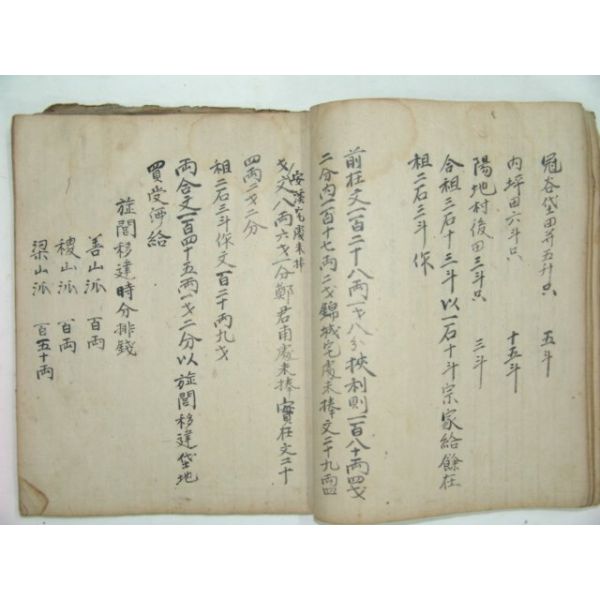 冠谷垈田幷五升只 五斗
內坪田六斗只 十五斗
陽地村後田三斗只 三斗
合租三石十三斗以一石十斗宗家給餘在
租二石三斗作
前在文一百二十八兩一戔八分揀利則一百八十兩四戔
二分內一百十七兩二戔錦城宅處未捧文二十九兩四
戔文八兩六戔一分鄭君甫處未捧實在文二十
安溪宅處未捧
四兩二戔二分
租二石三斗作文一百二十兩九戔
兩合文一百四十五兩一戔二分以旌閭移建垈地
買受許給
旌閭移建時分排錢
善山派 百兩
稷山派 百兩
梁山派 百五十兩